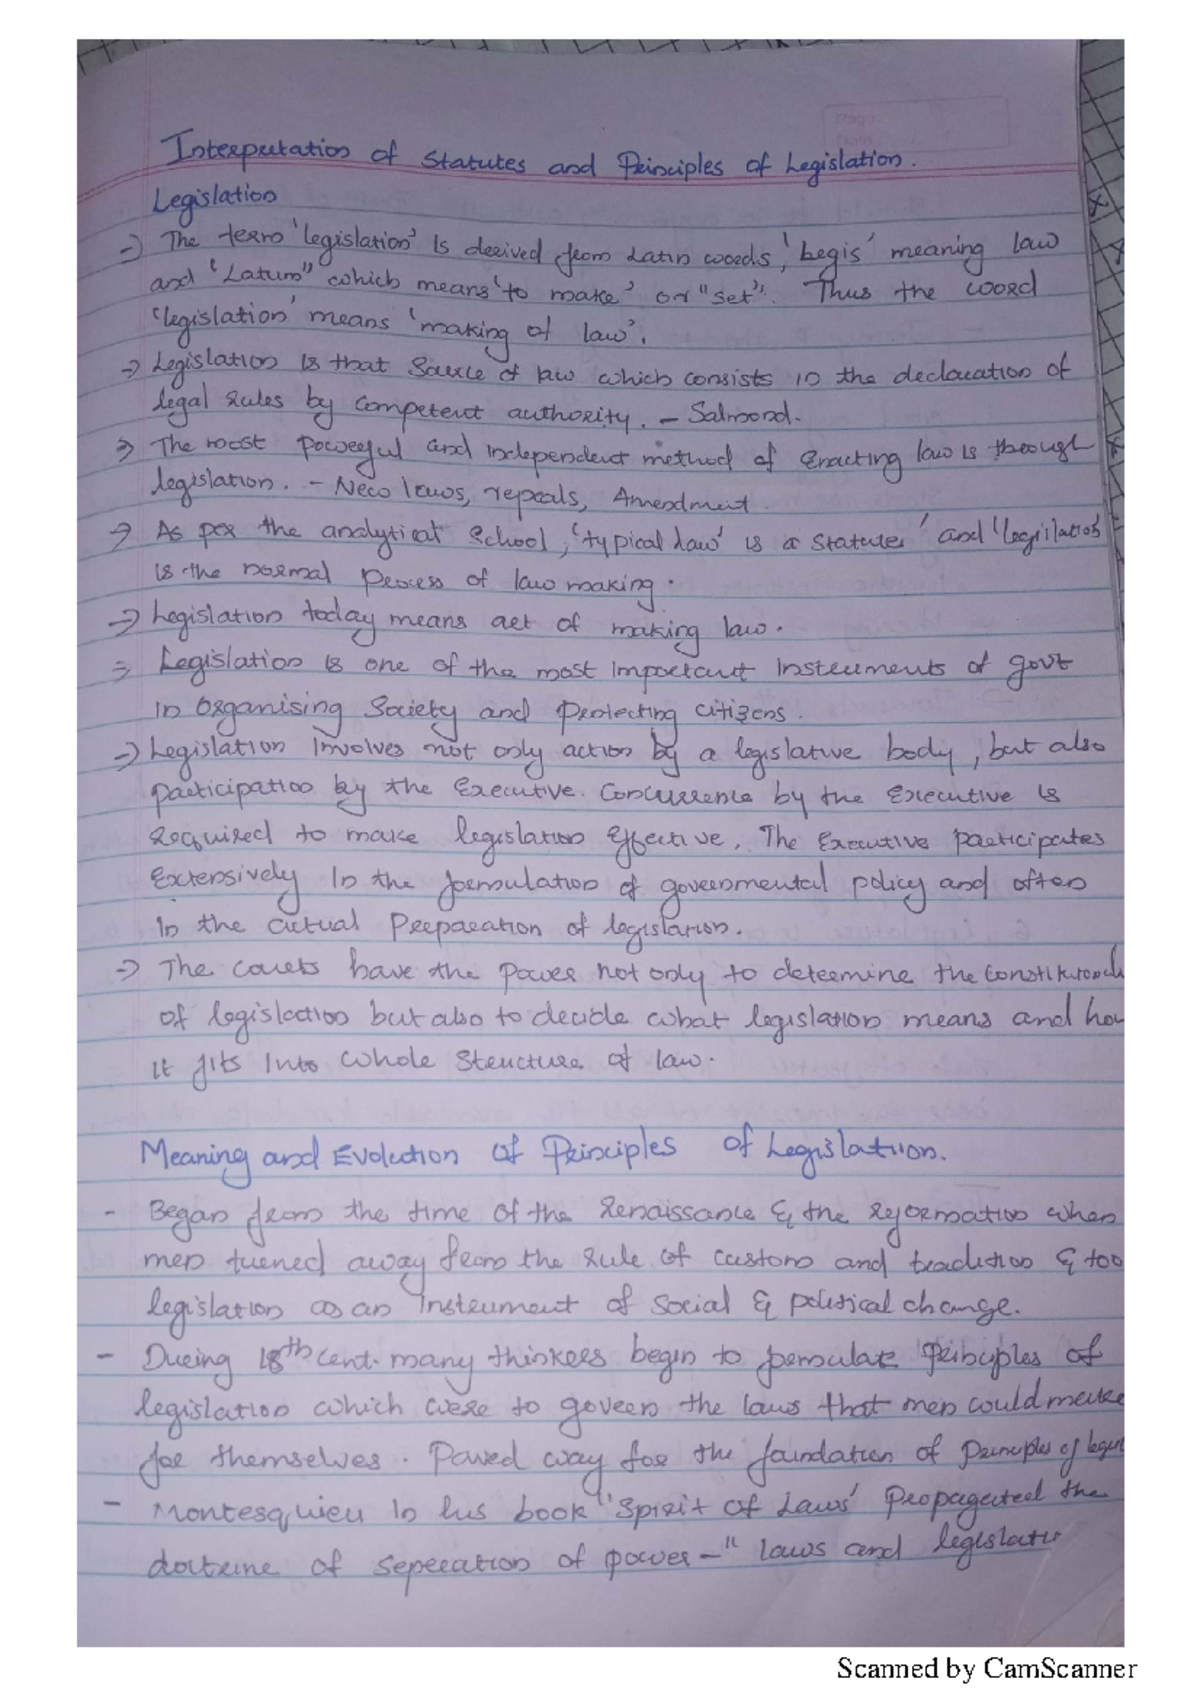 Interpretation of Statutes and Principles of Legislation.
Legislation
→ The term 'legislation' is derived from Latin words, 'Legis' meaning law
and "Latum" which means 'to make' or "set". Thus the word
'legislation' means 'making of law'.
→ Legislation is that Source of law which consists in the declaration of
legal rules by competent authority. - Salmond.
→ The most powerful and independent method of enacting law is through
legislation. - New laws, repeals, Amendment.
→ As per the analytical School, 'typical law' is a statute' and 'legislation
is the normal process of law making.
→ Legislation today means act of making law.
→ Legislation is one of the most important instruments of govt
in organising Society and protecting citizens.
→ Legislation involves not only action by a legislative body, but also
participation by the Executive. Concurrence by the executive is
required to make legislation effective. The Executive participates
extensively in the formulation of governmental policy and often
in the actual preparation of legislation.
→ The courts have the power not only to determine the
of legislation but also to decide what legislation means and
it fits into whole structure of law.
Meaning and Evolution of Principles of Legislatiion.
- Began from the time of the Renaissance & the Reformation when
men turned away from the rule of custom and tradition & too
legislation as an instrument of social & political change.
- During 18th cent. many thinkers begin to formulate principles of
legislation which were to govern the laws that men could make
for themselves. Paved way for the foundation of Principles of
- Montesquieu in his book "Spirit of Laws' propagated the
doctrine of seperation of power - " laws and
Scanned by CamScanner